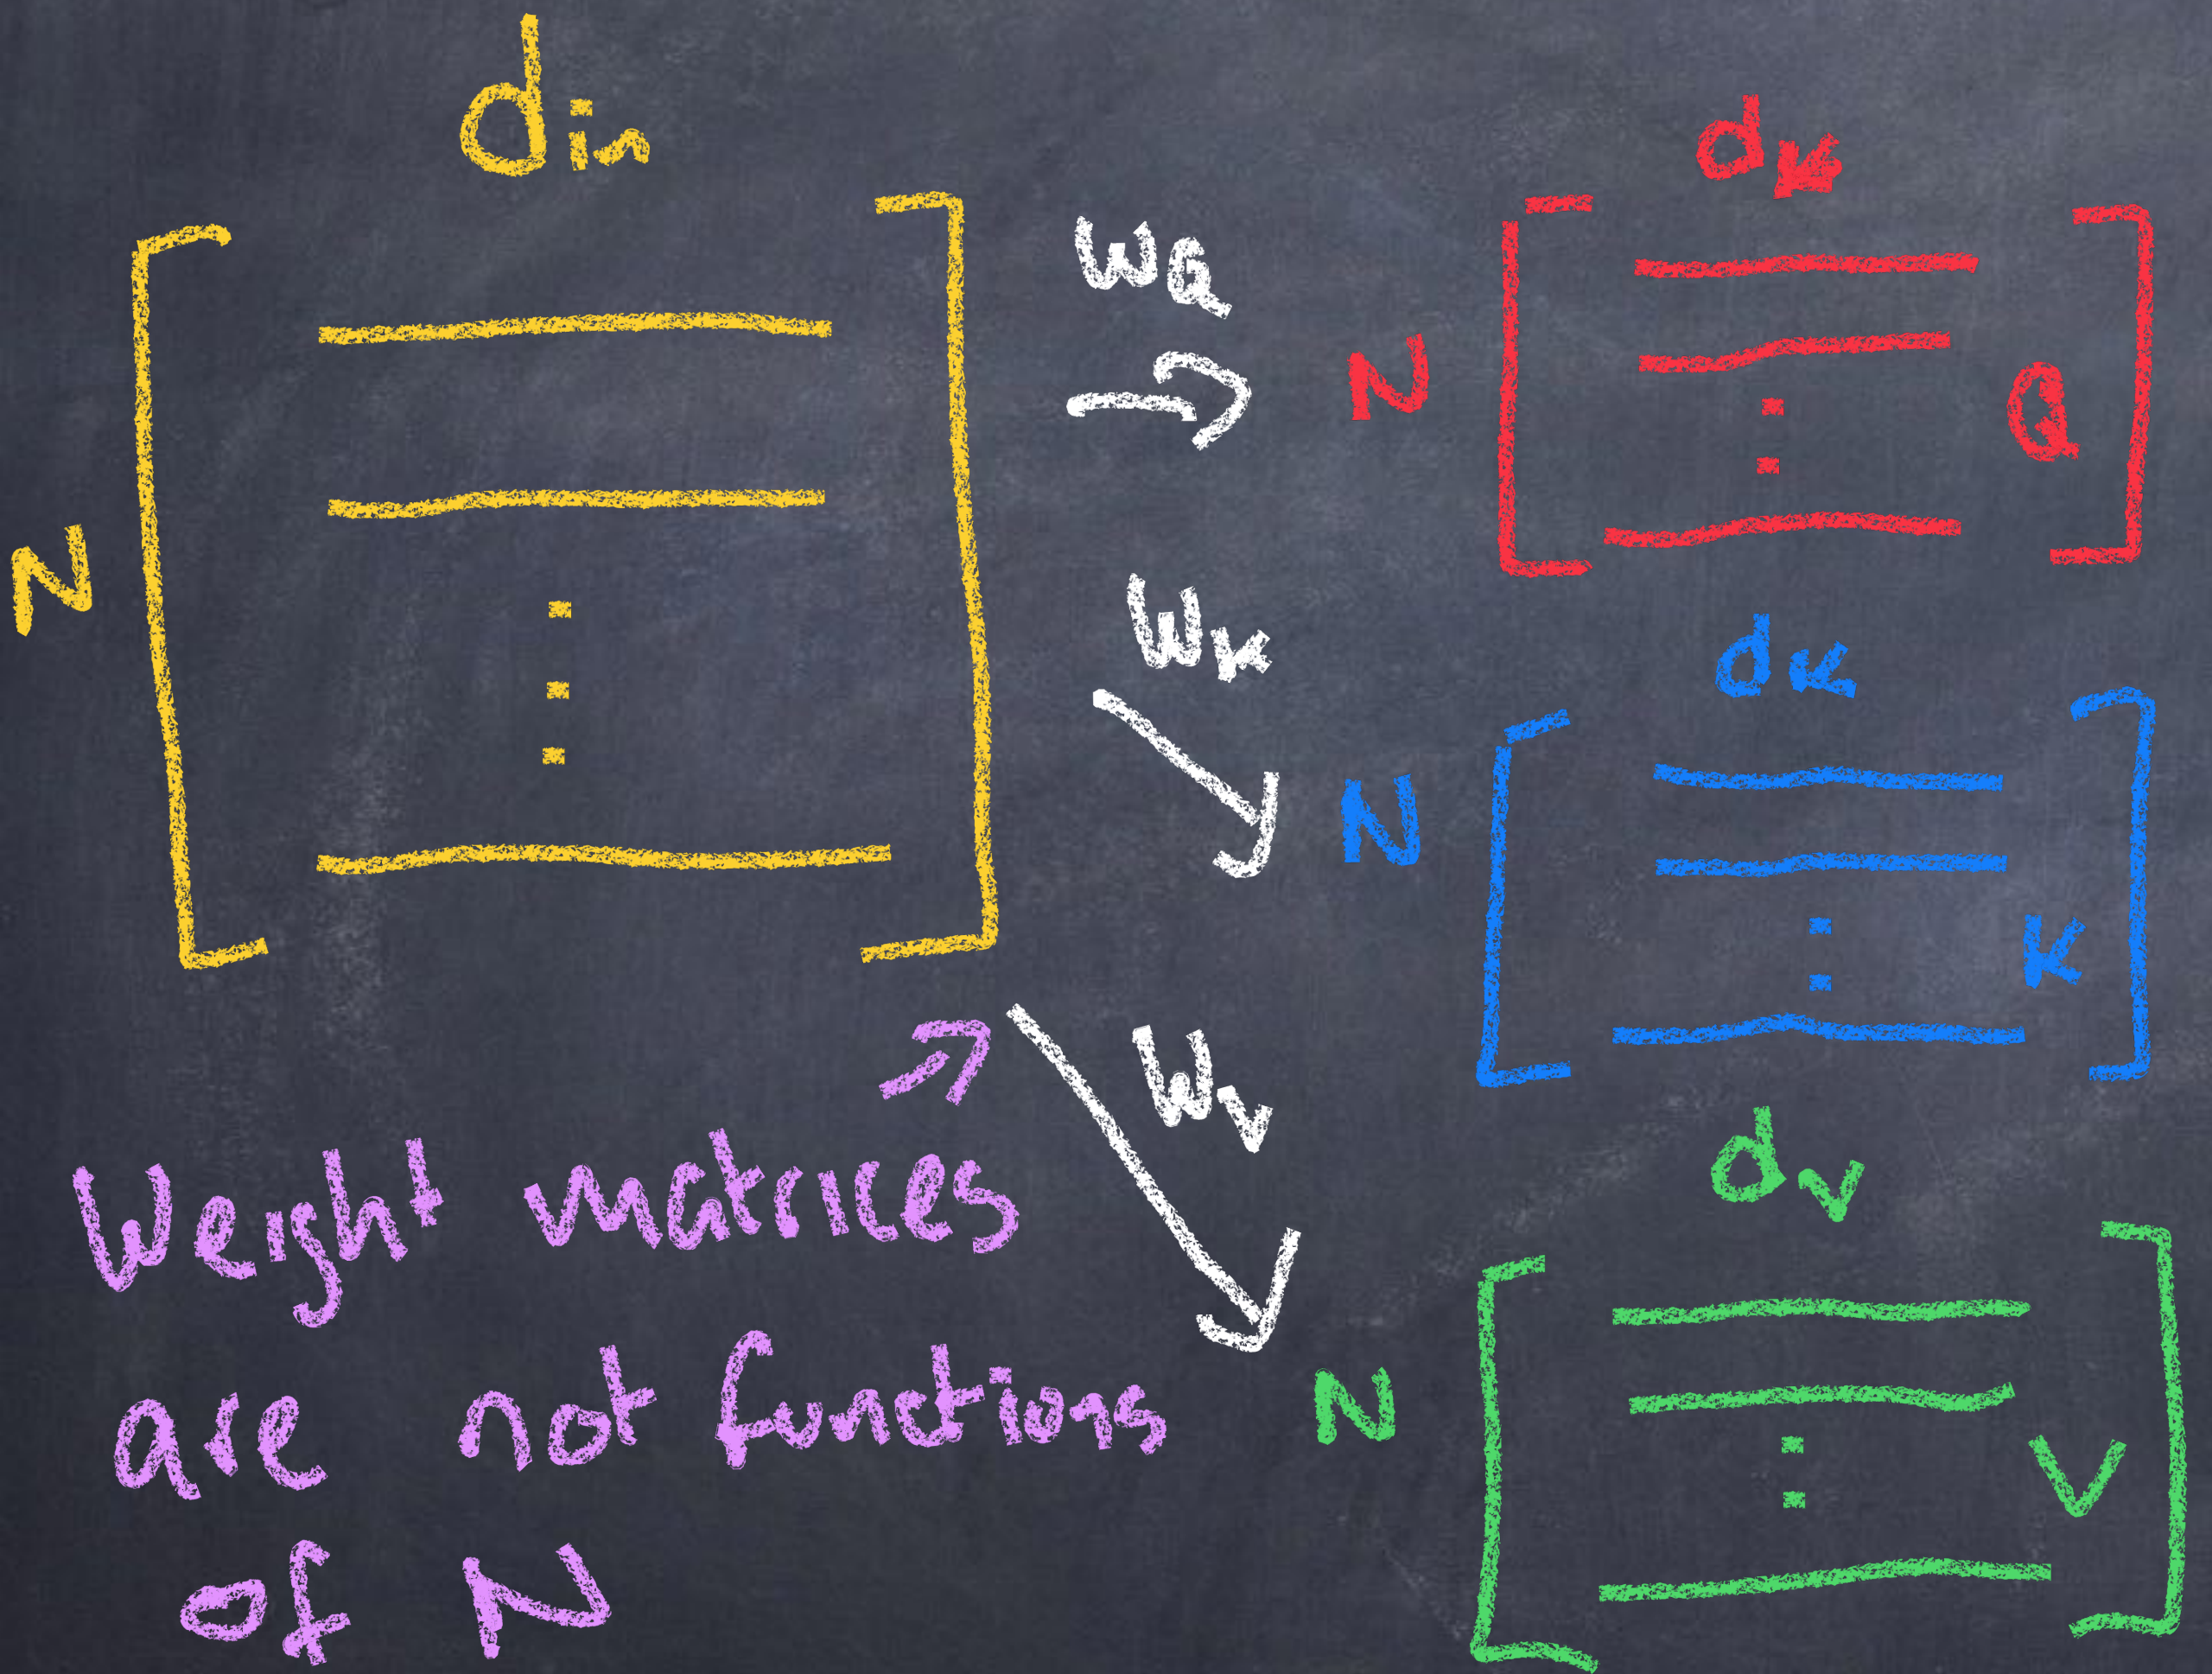 din
N
WQ
WK
WV
dK
N
Q
dK
N
K
dV
N
V
Weight matrices
are not functions
of N